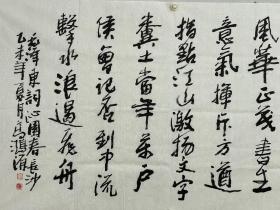 風華正茂書生
意氣揮斥方遒
指點江山激揚文字
糞土當年萬戶
侯曾記否到中流
擊水浪遏飛舟
毛澤東詞沁園春長沙
乙未年夏月高鴻